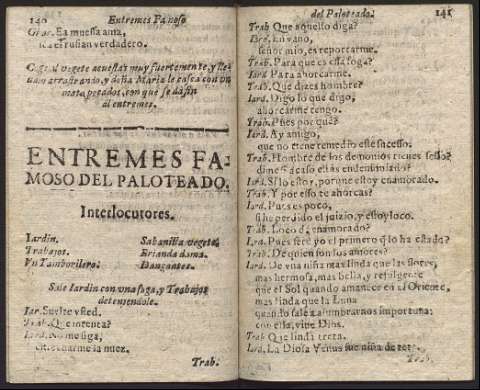 140 Entremes Famoso
Ea muessa ama,
rufian verdadero.
vegete acuestas muy fuertemente, y lle-
uan arrastrando, y doña Maria le casca con un
mata pecados, con que se da fin
al entremes.
ENTREMES FA-
MOSO DEL PALOTEADO.
Interlocutores.
Iardin. Sabanilla vegete.
Trabajos. Brianda dama.
Vn Tamborilero. Dançantes.
Sale Iardin con vna soga, y Trabajos
deteniendole.
Iar. Suelte vsted.
Trab. Que intenta?
Iard. No me siga,
echarme la nuez.
Trab.
del Paloteado. 141
Trab. Que aquello diga?
En vano,
señor mio, es reportarme.
Trab. Para que es essa soga?
Iard. Para ahorcarme.
Trab. Que dizes hombre?
Iard. Digo lo que digo,
ahorcarme tengo.
Trab. Pues por què?
Iard. Ay amigo,
que no tiene remedio esse sucesso.
Trab. Hombre de los demonios tienes sesso?
dime acaso estàs endemoniado?
Iard. Si lo estoy, porque estoy enamorado.
Trab. Y por esso te ahorcas?
Iard. Pues es poco,
si he perdido el juizio, y estoy loco.
Trab. Loco de enamorado?
Iard. Pues serè yo el primero q̃ lo ha estado?
Trab. De quien son los amores?
Iard. De vna niña mas linda que las flores,
mas hermosa, mas bella, y refulgente
que el Sol quando amanece en el Oriente,
mas linda que la Luna
quando sale a alumbrarnos importuna:
con ella, viue Dios.
Trab. Que linda treta.
Iard. La Diosa Venus fue niña de teta.
Trab.